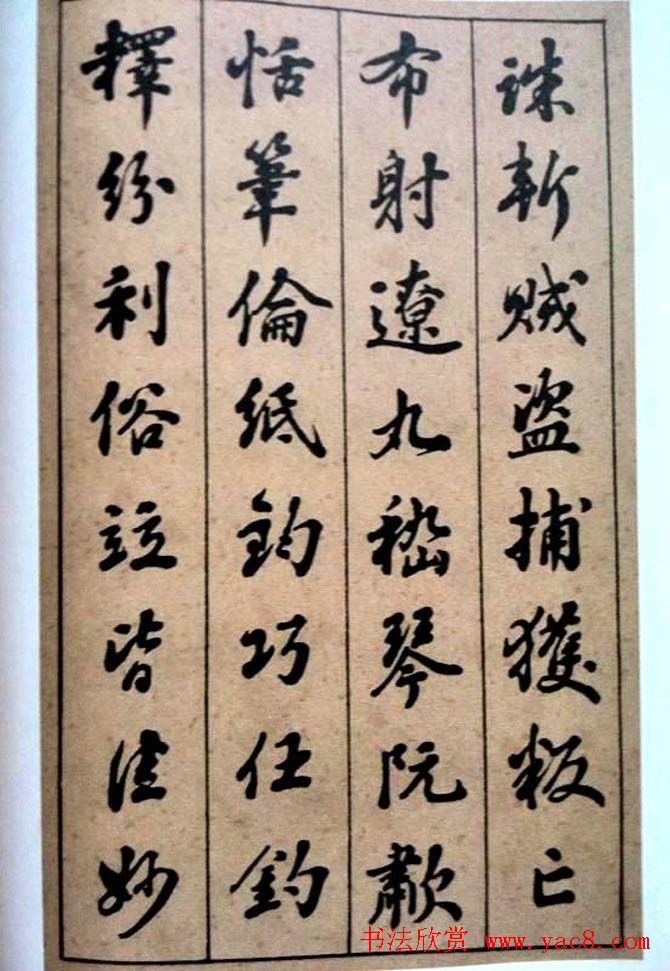 誅斬賊盜捕獲叛亡
布射遼丸嵇琴阮歗
恬筆倫紙鈞巧任釣
釋紛利俗竝皆佳妙
书法欣赏 www.yac8.com